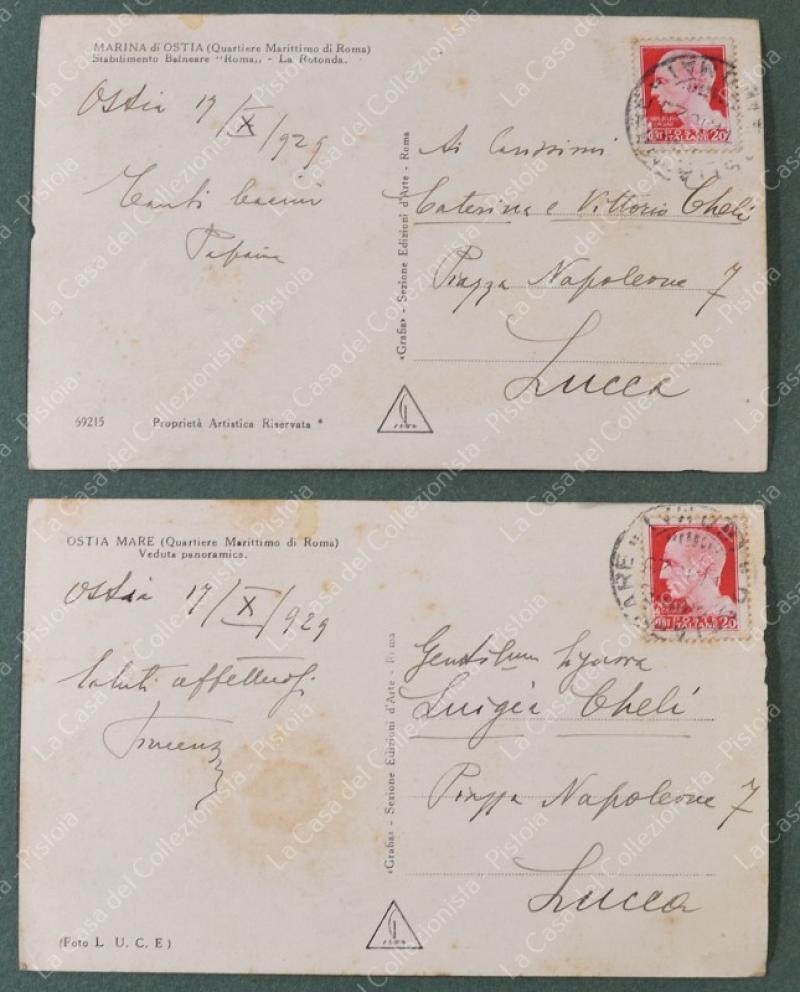 MARINA di OSTIA (Quartiere Marittimo di Roma)
Stabilimento Balneare "Roma,, - La Rotonda.
Ostia 17/X/929
Tanti bacini
Ai Carissimi
Caterina e Vittorio Cheli
Piazza Napoleone 7
Lucca
«Grafia» - Sezione Edizioni d'Arte - Roma
POSTE ITALIANE 20
69215 Proprietà Artistica Riservata *
OSTIA MARE (Quartiere Marittimo di Roma)
Veduta panoramica.
Ostia 17/X/929
Saluti affettuosi
Gentilem Signora
Luigia Cheli
Piazza Napoleone 7
Lucca
«Grafia» - Sezione Edizioni d'Arte - Roma
POSTE ITALIANE 20
(Foto L. U. C. E.)
La Casa del Collezionista - Pistoia